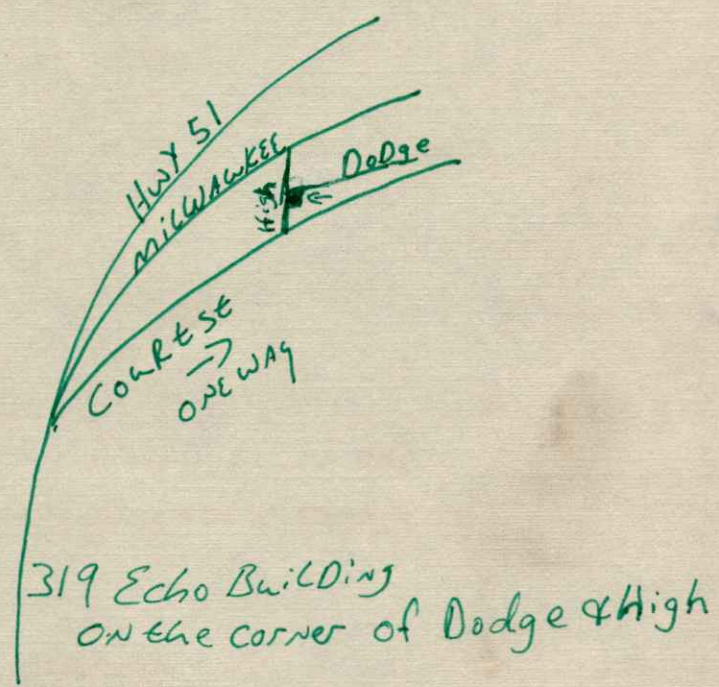 HWY 51
MILWAWKEE
DoDge
High
CouRt St
ONE WAY
319 Echo BuilDing
ON the corner of Dodge & High